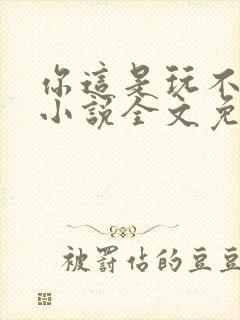 你這是玩不
小說全文免
被罰佔的豆豆